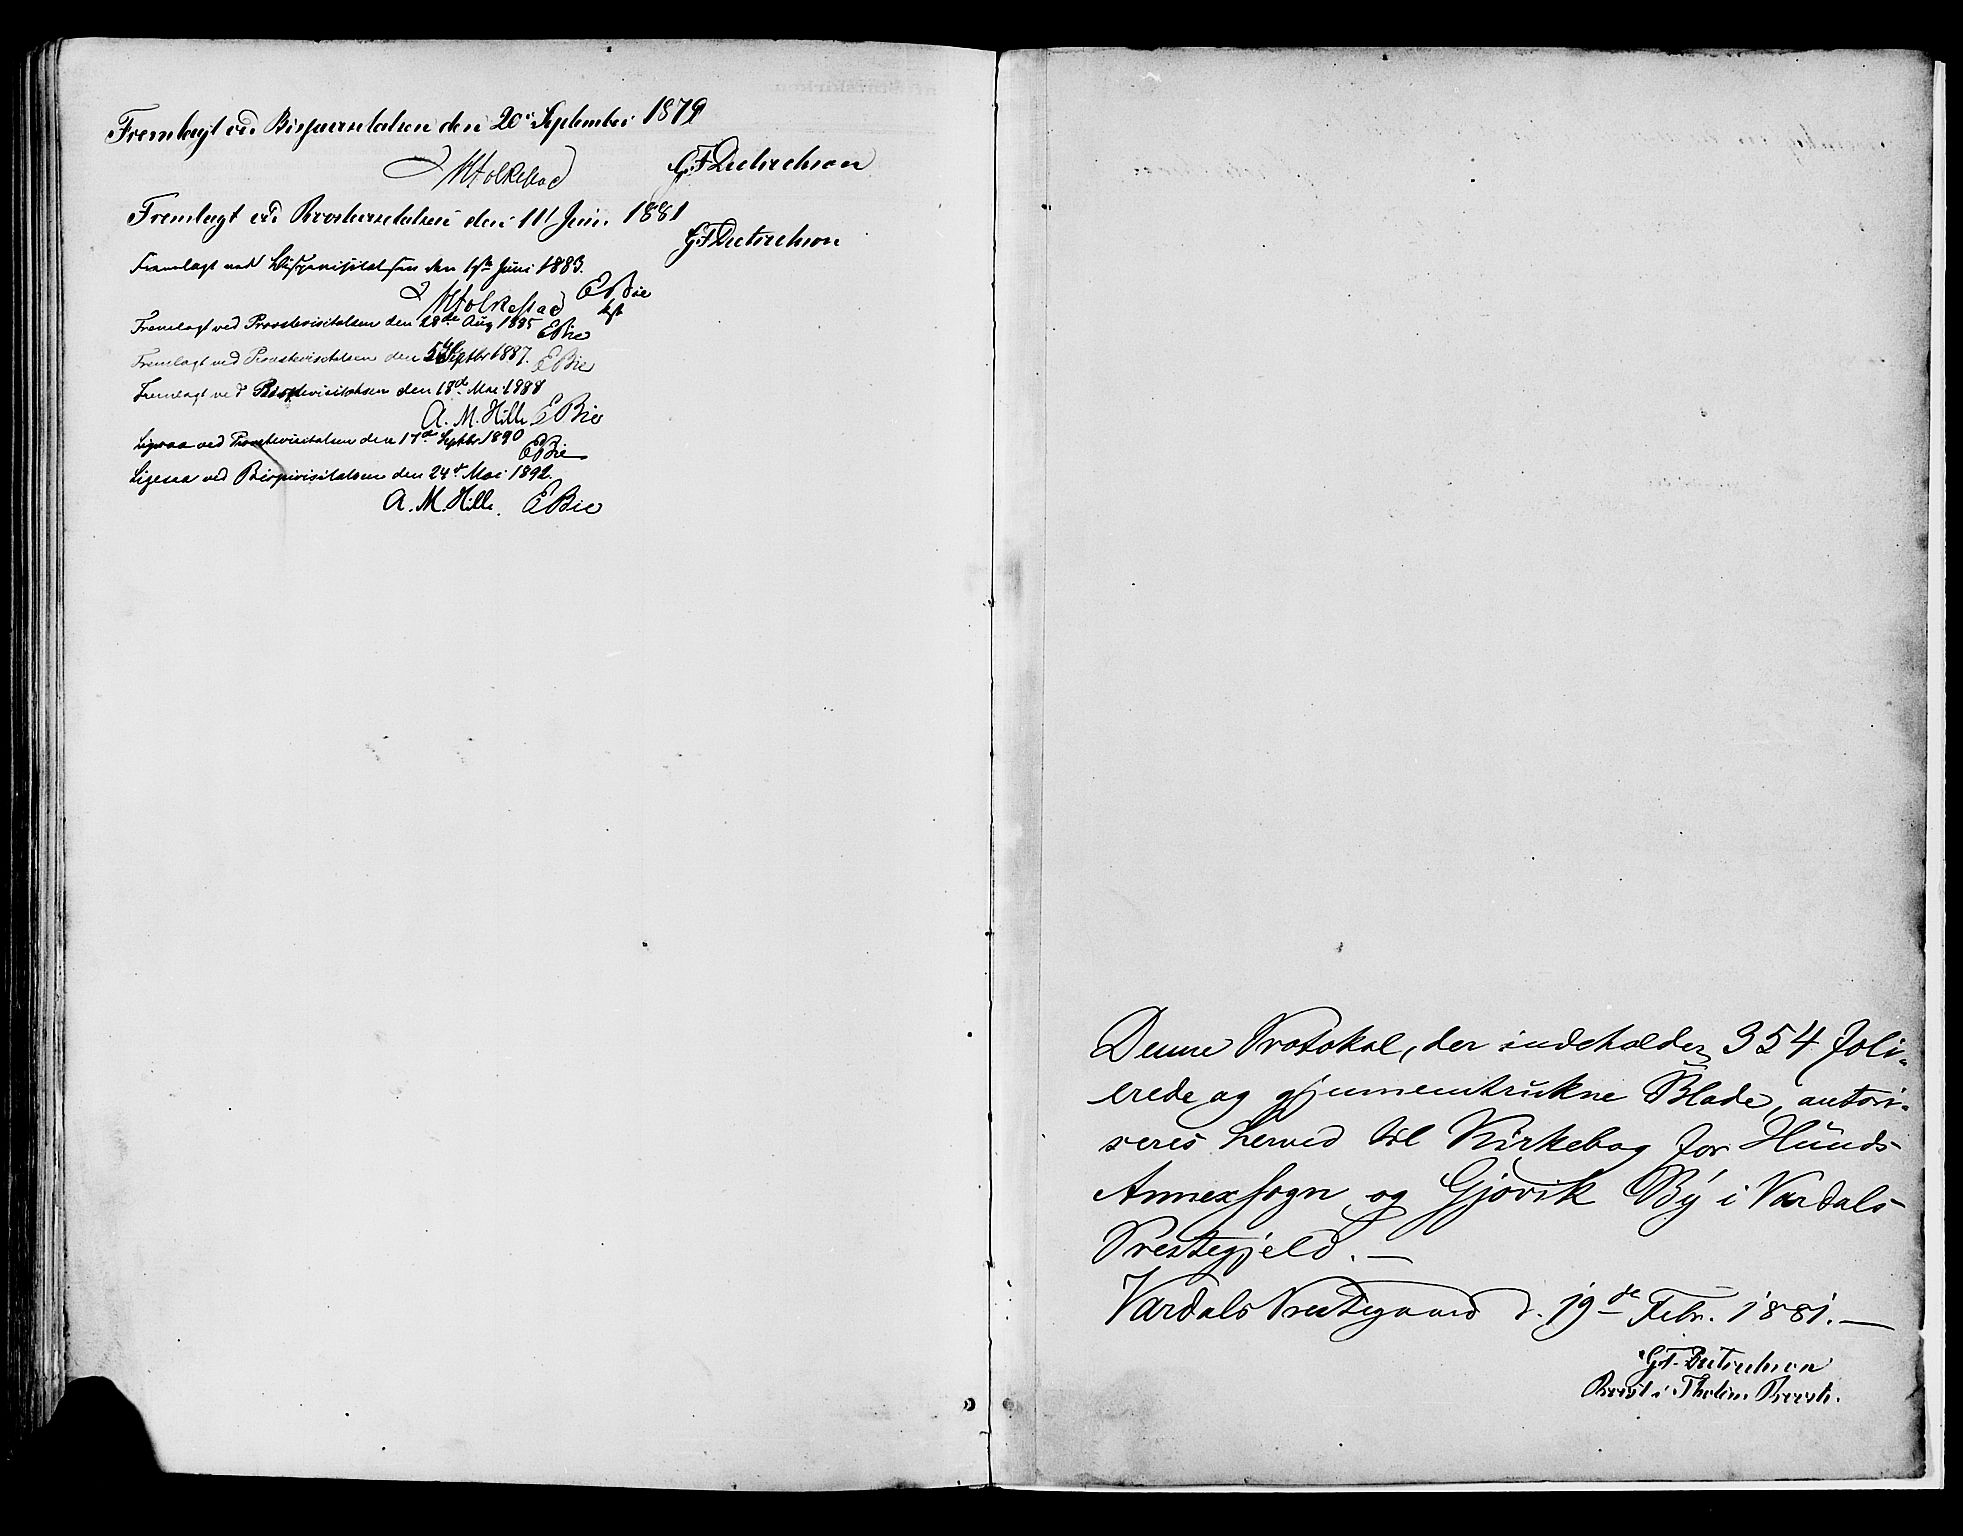 Fremlagt ved Bispevisitatsen den 20de September 1879
J Hkolkestad GFDietrichson
Fremlagt ved Provstevisitatsen den 11te Juni 1881
GFDietrichson
Fremlagt ved Bispevisitatsen den Juni 1883.
EBie
Fremlagt ved Provstevisitatsen den 28de Aug 1885 EBie
Fremlagt ved Provstevisitatsen den 5te Septbr 1887. EBie
Fremlagt ved Bispevisitatsen den 18de Mai 1888
A. M. Hille EBie
Ligesaa ved Provstevisitatsen den 17de Septbr 1890
EBie
Ligesaa ved Bispevisitatsen den 24de Mai 1892.
A. M. Hille. EBie
Denne Protokol, der indeholder 354 foli-
erede og gjennemtrukne Blade, autori-
seres herved til Kirkebog for Hunds
Annexsogn og Gjøvik By i Vardals
Prestegjeld. —
Vardals Prestegaard d. 19de Febr. 1881. —
GF. Dietrichson
Provst i Thotens Provsti.